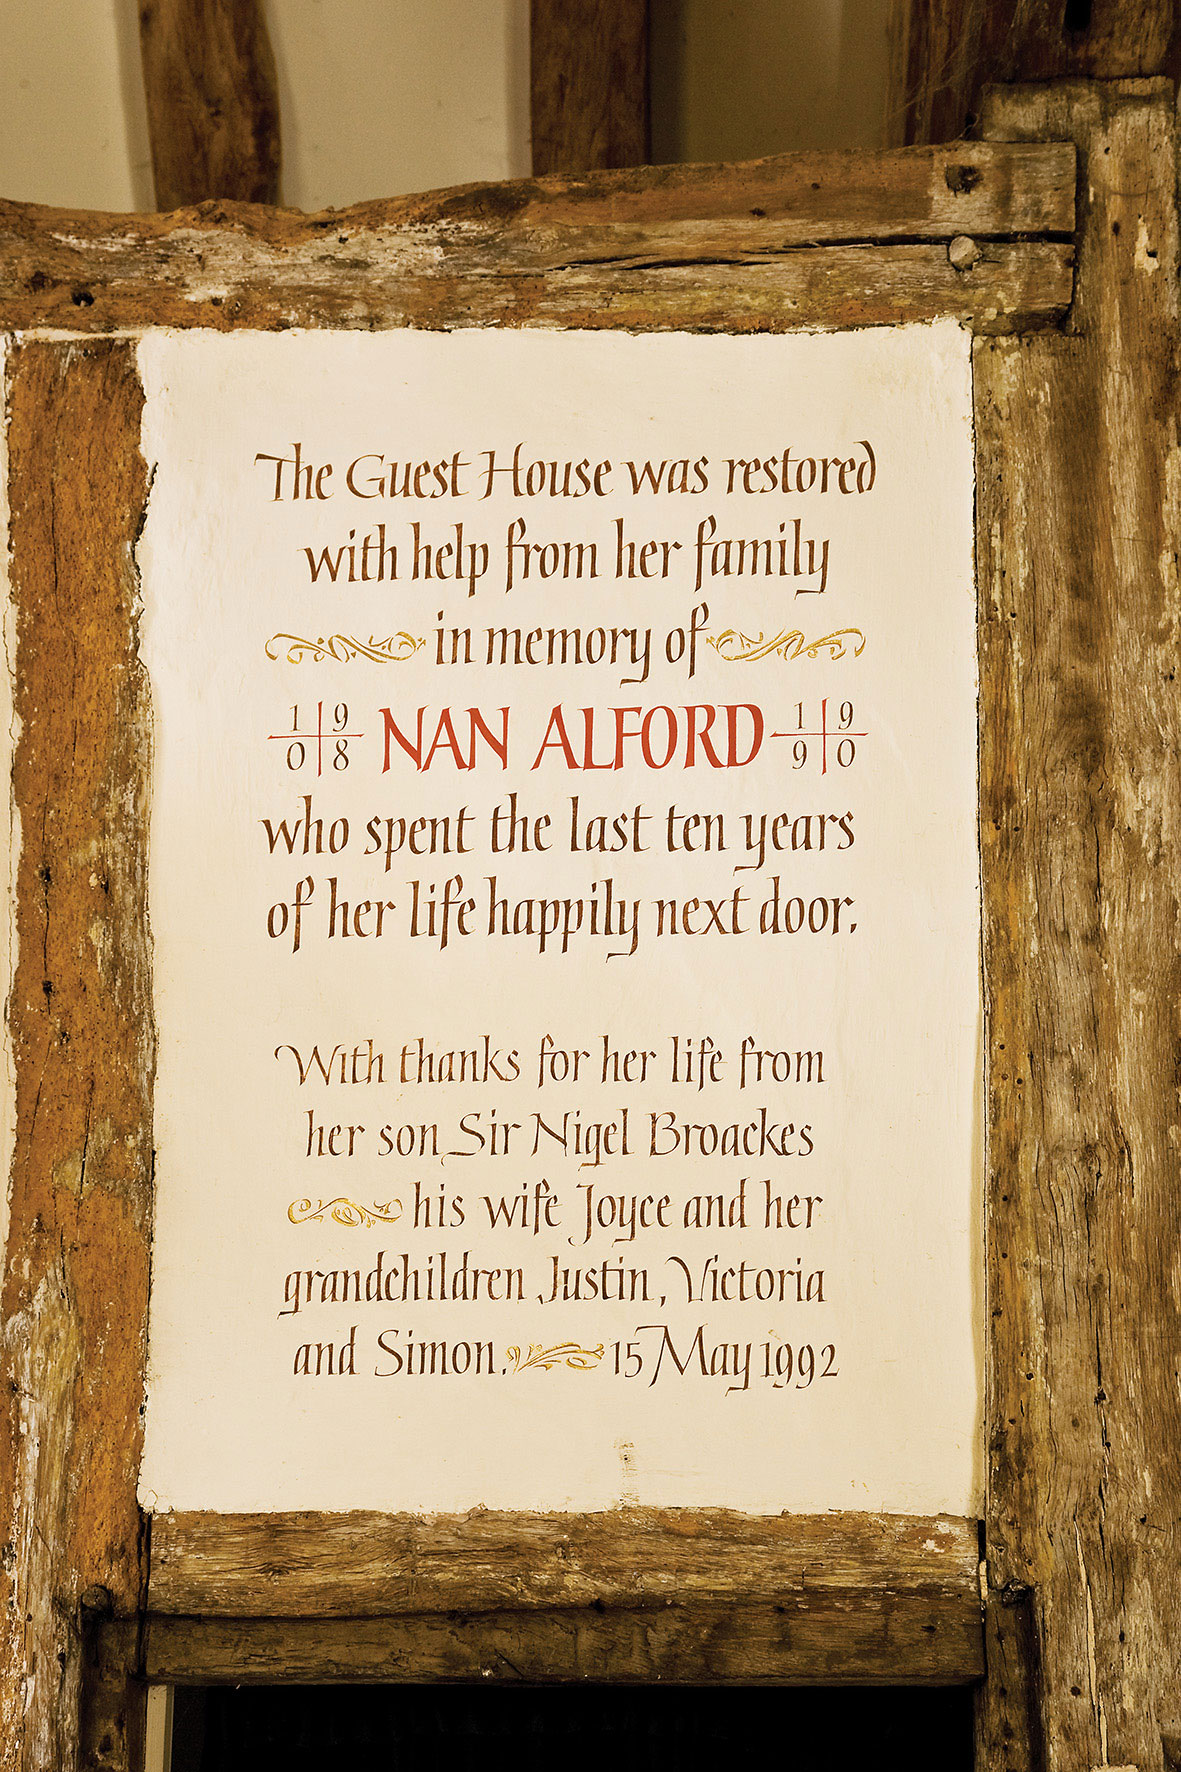 The Guest House was restored
with help from her family
in memory of
1908 NAN ALFORD 1990
who spent the last ten years
of her life happily next door.
With thanks for her life from
her son Sir Nigel Broackes
his wife Joyce and her
grandchildren Justin, Victoria
and Simon. 15 May 1992